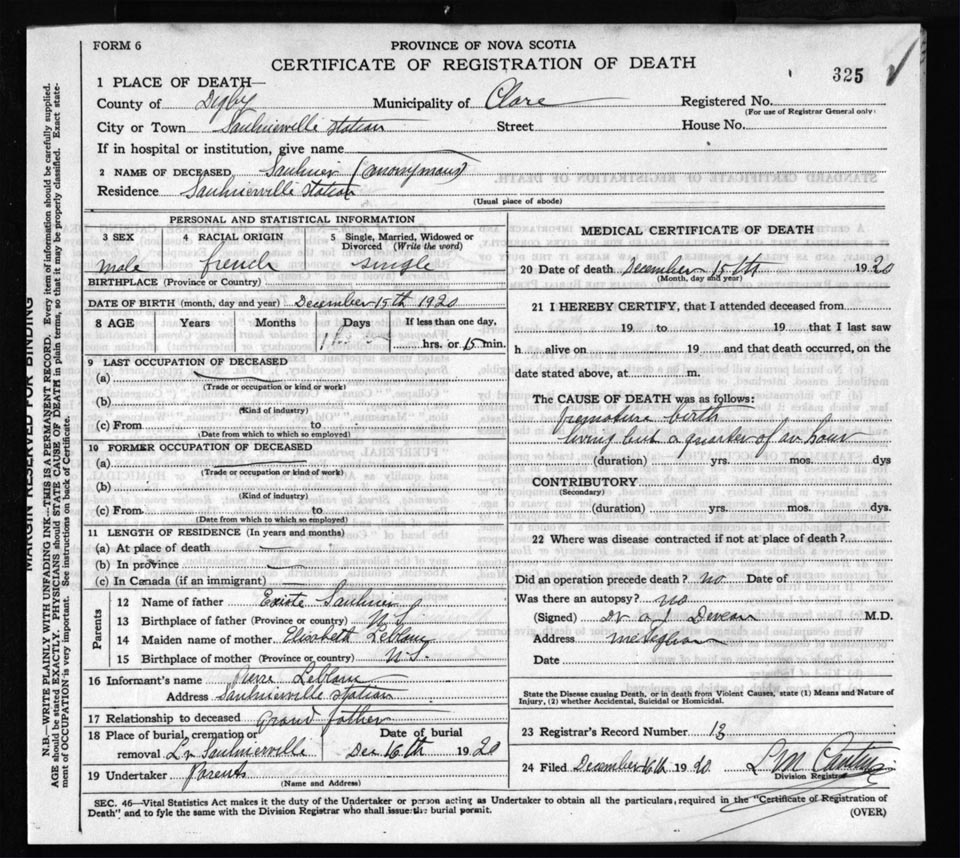 FORM 6
PROVINCE OF NOVA SCOTIA
CERTIFICATE OF REGISTRATION OF DEATH
325
1 PLACE OF DEATH—
County of Digby Municipality of Clare Registered No.
(For use of Registrar General only)
City or Town Saulnierville Station Street House No.
If in hospital or institution, give name
2 NAME OF DECEASED Saulnier (anonymous)
Residence Saulnierville Station
(Usual place of abode)
PERSONAL AND STATISTICAL INFORMATION
3 SEX 4 RACIAL ORIGIN 5 Single, Married, Widowed or Divorced (Write the word)
male french single
BIRTHPLACE (Province or Country)
DATE OF BIRTH (month, day and year) December 15th 1920
8 AGE Years Months Days If less than one day,
hrs. or 15 min.
9 LAST OCCUPATION OF DECEASED
(a)
(Trade or occupation or kind or work)
(b)
(Kind of industry)
(c) From to
(Date from which to which so employed)
10 FORMER OCCUPATION OF DECEASED
(a)
(Trade or occupation or kind of work)
(b)
(Kind of industry)
(c) From to
(Date from which to which so employed)
11 LENGTH OF RESIDENCE (In years and months)
(a) At place of death
(b) In province
(c) In Canada (if an immigrant)
Parents
12 Name of father Saulnier
13 Birthplace of father (Province or country) N.S.
14 Maiden name of mother Elizabeth Leblanc
15 Birthplace of mother (Province or country) N.S.
16 Informant's name Leblanc
Address Saulnierville Station
17 Relationship to deceased Grand father
18 Place of burial, cremation or Date of burial
removal Saulnierville Dec 16th 1920
19 Undertaker Parents
(Name and Address)
MEDICAL CERTIFICATE OF DEATH
20 Date of death December 15th 1920
(Month, day and year)
21 I HEREBY CERTIFY, that I attended deceased from
19 to 19 that I last saw
h alive on 19 and that death occurred, on the
date stated above, at m.
The CAUSE OF DEATH was as follows:
premature birth
living but a quarter of an hour
(duration) yrs. mos. dys
CONTRIBUTORY
(Secondary)
(duration) yrs. mos. dys.
22 Where was disease contracted if not at place of death?
Did an operation precede death? no Date of
Was there an autopsy? no
(Signed) Dr M.D.
Address Meteghan
Date
State the Disease causing Death, or in death from Violent Causes, state (1) Means and Nature of
Injury, (2) whether Accidental, Suicidal or Homicidal.
23 Registrar's Record Number 13
24 Filed December 16th 1920
Division Registrar
SEC. 46—Vital Statistics Act makes it the duty of the Undertaker or person acting as Undertaker to obtain all the particulars, required in the "Certificate of Registration of
Death" and to fyle the same with the Division Registrar who shall issue the burial permit.
(OVER)
MARGIN RESERVED FOR BINDING
N.B.—WRITE PLAINLY WITH UNFADING INK—THIS IS A PERMANENT RECORD. Every item of information should be carefully supplied.
AGE should be stated EXACTLY. PHYSICIANS should STATE CAUSE OF DEATH in plain terms, so that it may be properly classified. Exact state-
ment of OCCUPATION is very important. See instructions on back of Certificate.